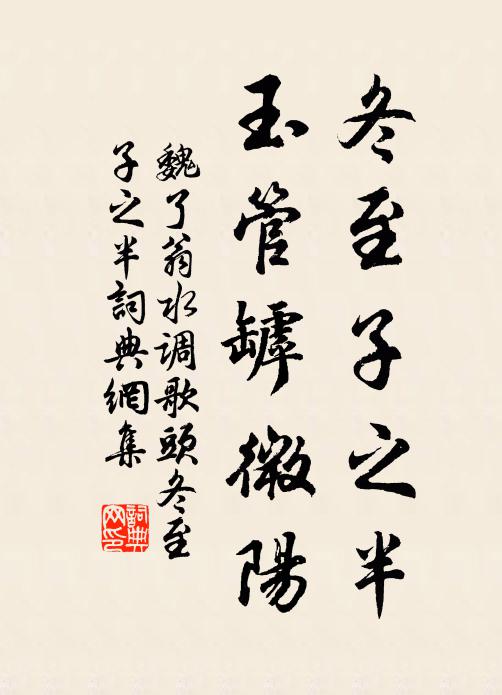 冬至子之半
玉管罅微陽
魏了翁水调歌頭冬至
子之半詞典網集
詞典
网印